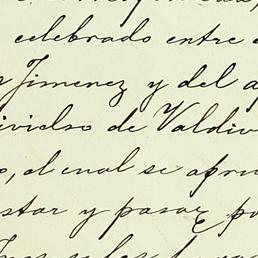 celebrado entre
Jimenez y del
de Valdiv
, el cual se apru
star y pasar po